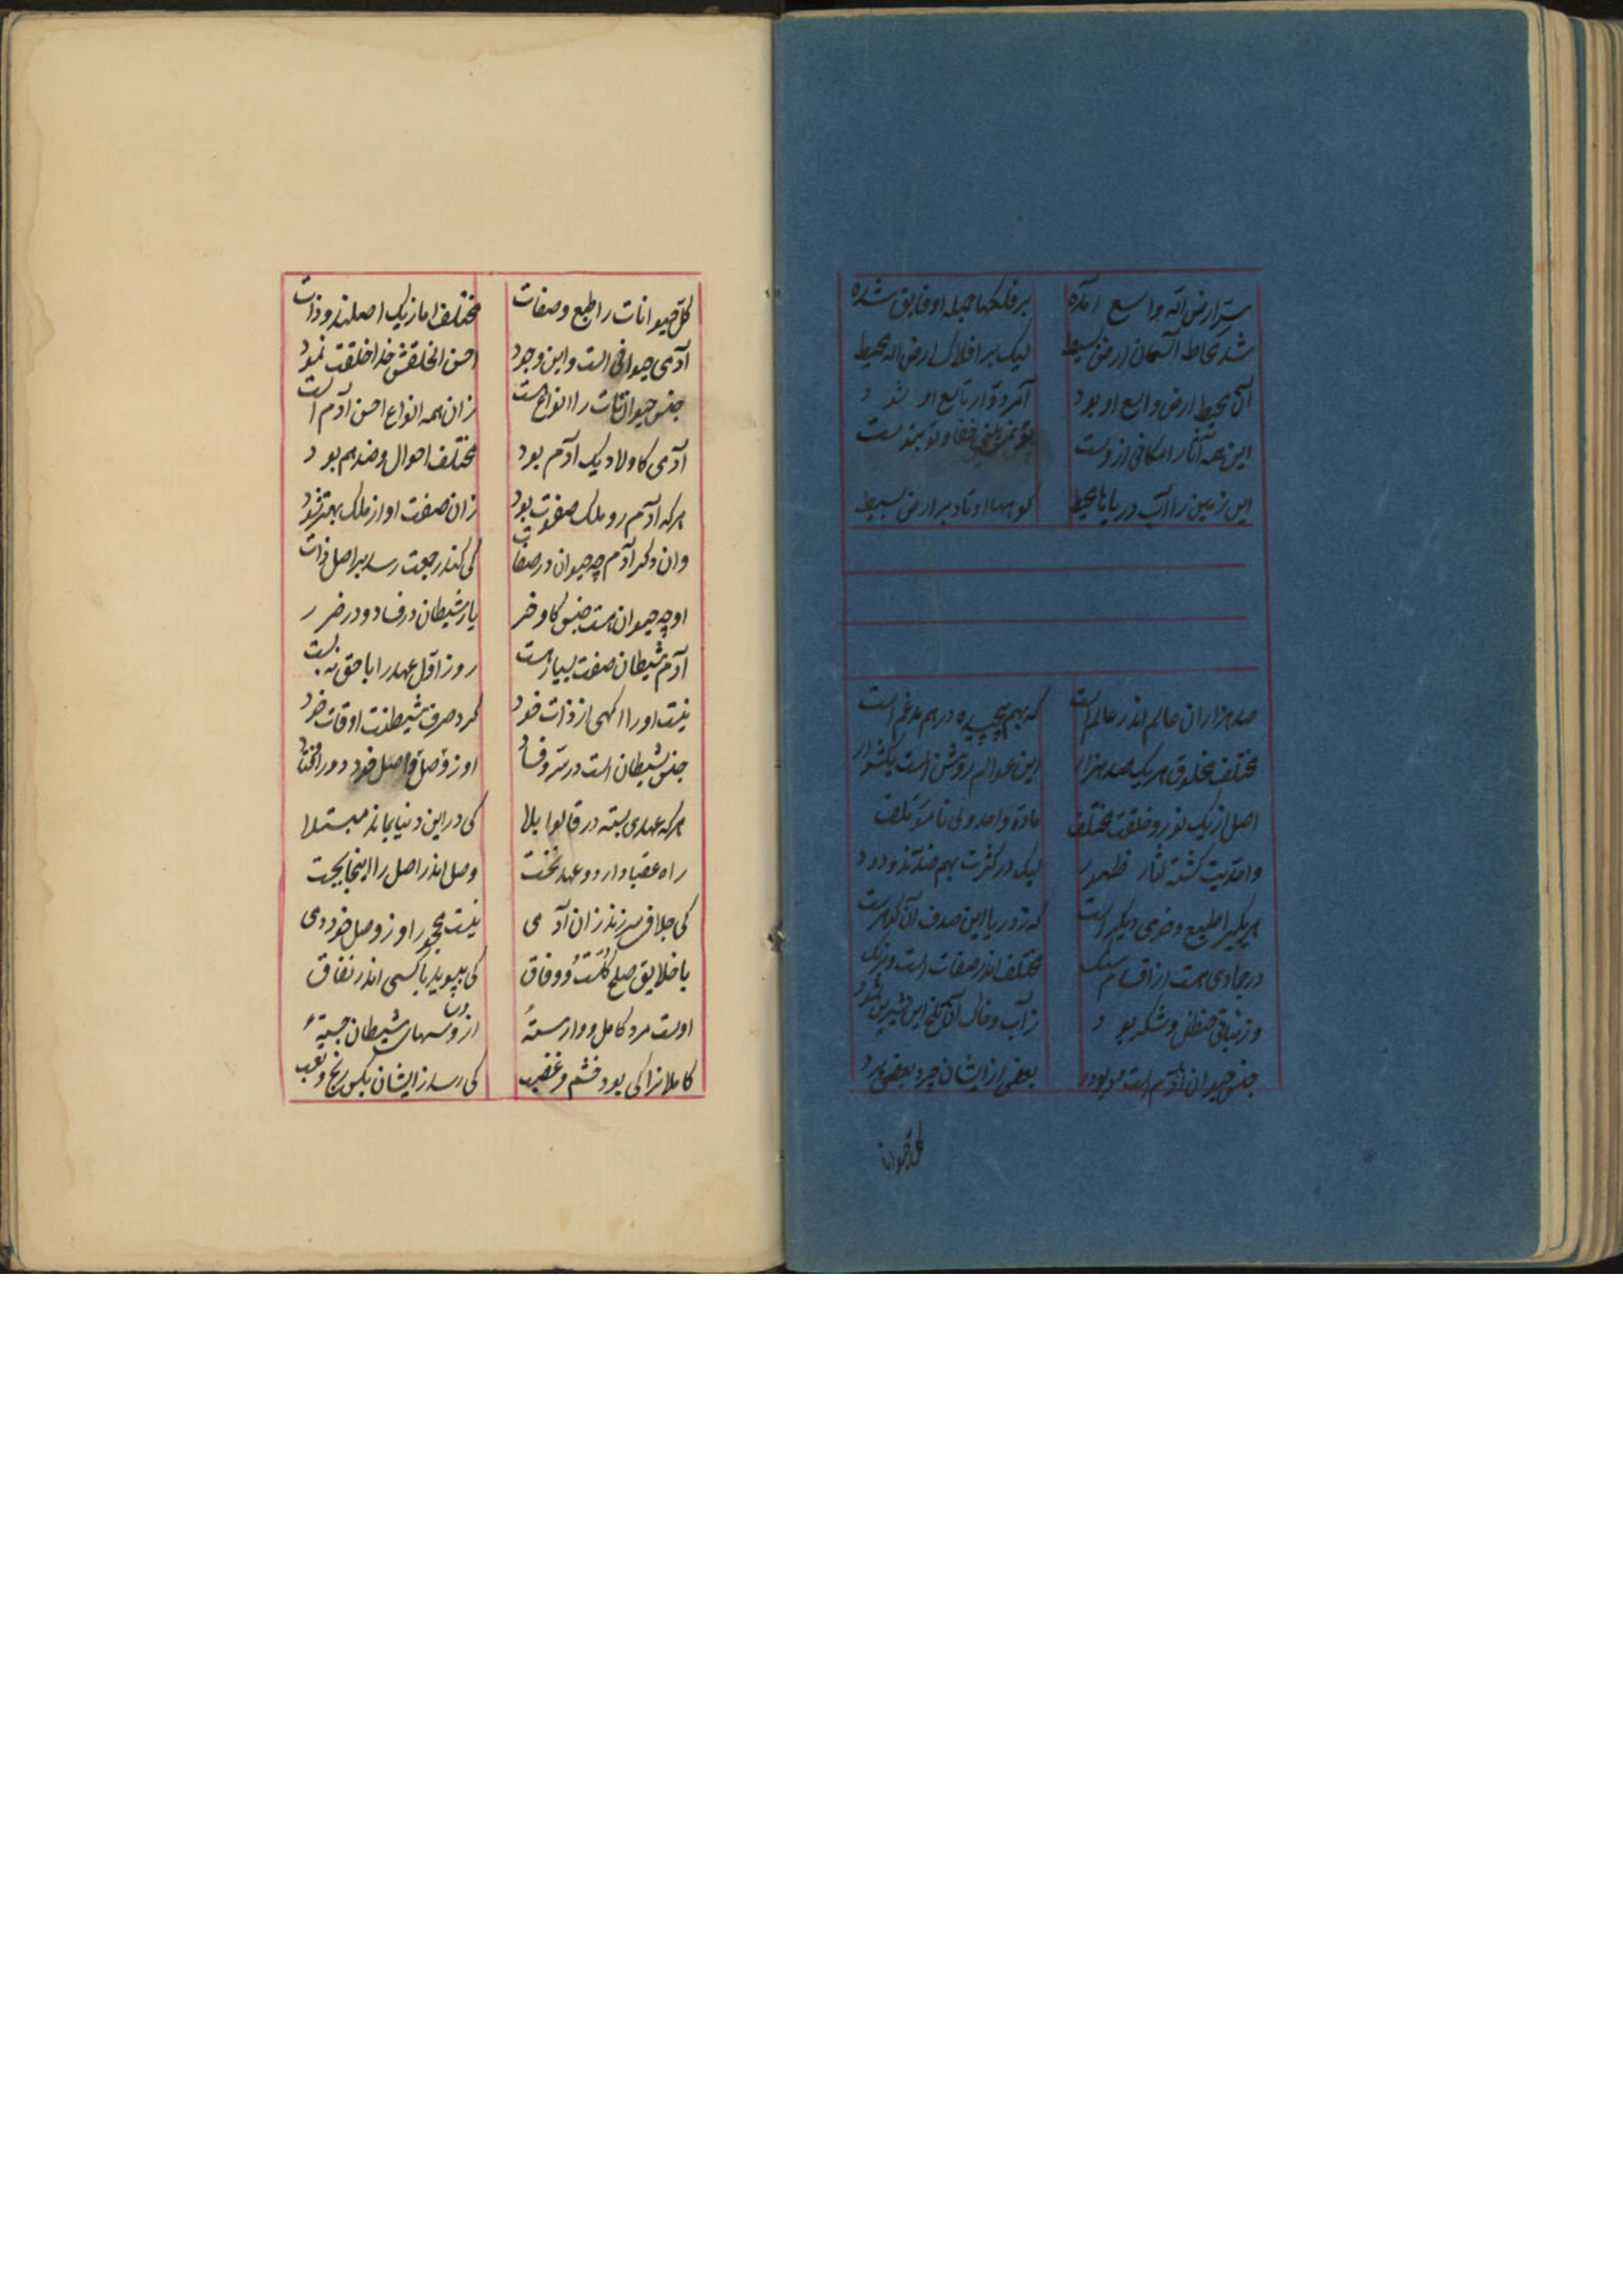 سرّ ارض الله واسع آمده برفلکها جمله او فایق شده
شد محاط آسمان ارض بسیط لیک بر افلاک ارض الله محیط
آن محیط ارض واسع او بود آن دوار تابع او شود
این همه آثار امکانی ازوست
این زمین را آب دریاها محیط کوهها اوتاد بر ارض بسیط
صد هزاران عالم اندر عالم است که بهم پیچیده درهم مدغم است
مختلف مخلوق هریک صد هزار این عوالم روشن است بیشمار
اصل از یک نور و خلقت مختلف ماده واحد ولی نامؤتلف
واحدیت کشته آثار ظهور لیک در کثرت بهم ضدند و دور
هریکیرا طبع و خوی دیکر است که ز دریا این صدف آن کوهر است
در جمادی هست از اقسام سنک مختلف اندر صفات است و برنک
وز نباتی حنظل و شکر بود ز آب و خاک آن تلخ این شیرین شود
جنس حیوان آدم است بعضی از ایشان چرد بعضی درد
کل حیوانات
کل حیوانات را طبع و صفات مختلف اما ز یک اصلند و ذات
آدمی حیوانی است و این وجود احسن الخلقش خدا خلقت نمود
جنس حیوانات را انواع است زان همه انواع احسن آدم است
آدمی کاولاد یک آدم بود مختلف احوال و ضد هم بود
هرکه آدم رو ملک صفوت بود زان صفت او از ملک بهتر شود
وان دکر آدم چه حیوان در صفات کی کند رجعت رسد بر اصل ذات
او چه حیوان هست جنس کاو خر یا ز شیطان در فساد و در ضرر
آدم شیطان صفت بسیار هست روز اول عهد را با حق نه بست
نیست او را اکهی از ذات خود کرد صرف شیطنت اوقات خود
جنس شیطان است در شر و فساد او ز وصل و اصل خود دور افتاد
هرکه عهدی بسته در قالوا بلا کی در این دنیا بماند مبتلا
راه عقبا دارد و عهد نخست وصل اندر اصل را اینجا بجست
کی خلافی سر زند زان آدمی نیست مهجور او ز وصل خود دمی
با خلایق صلح کلست و وفاق کی بپوید با کسی اندر نفاق
اوست مرد کامل و وارستهٔ از وسهای شیطان جستهٔ
کاملانرا کی بود خشم و غضب کی رسد زایشان بکس رنج و تعب